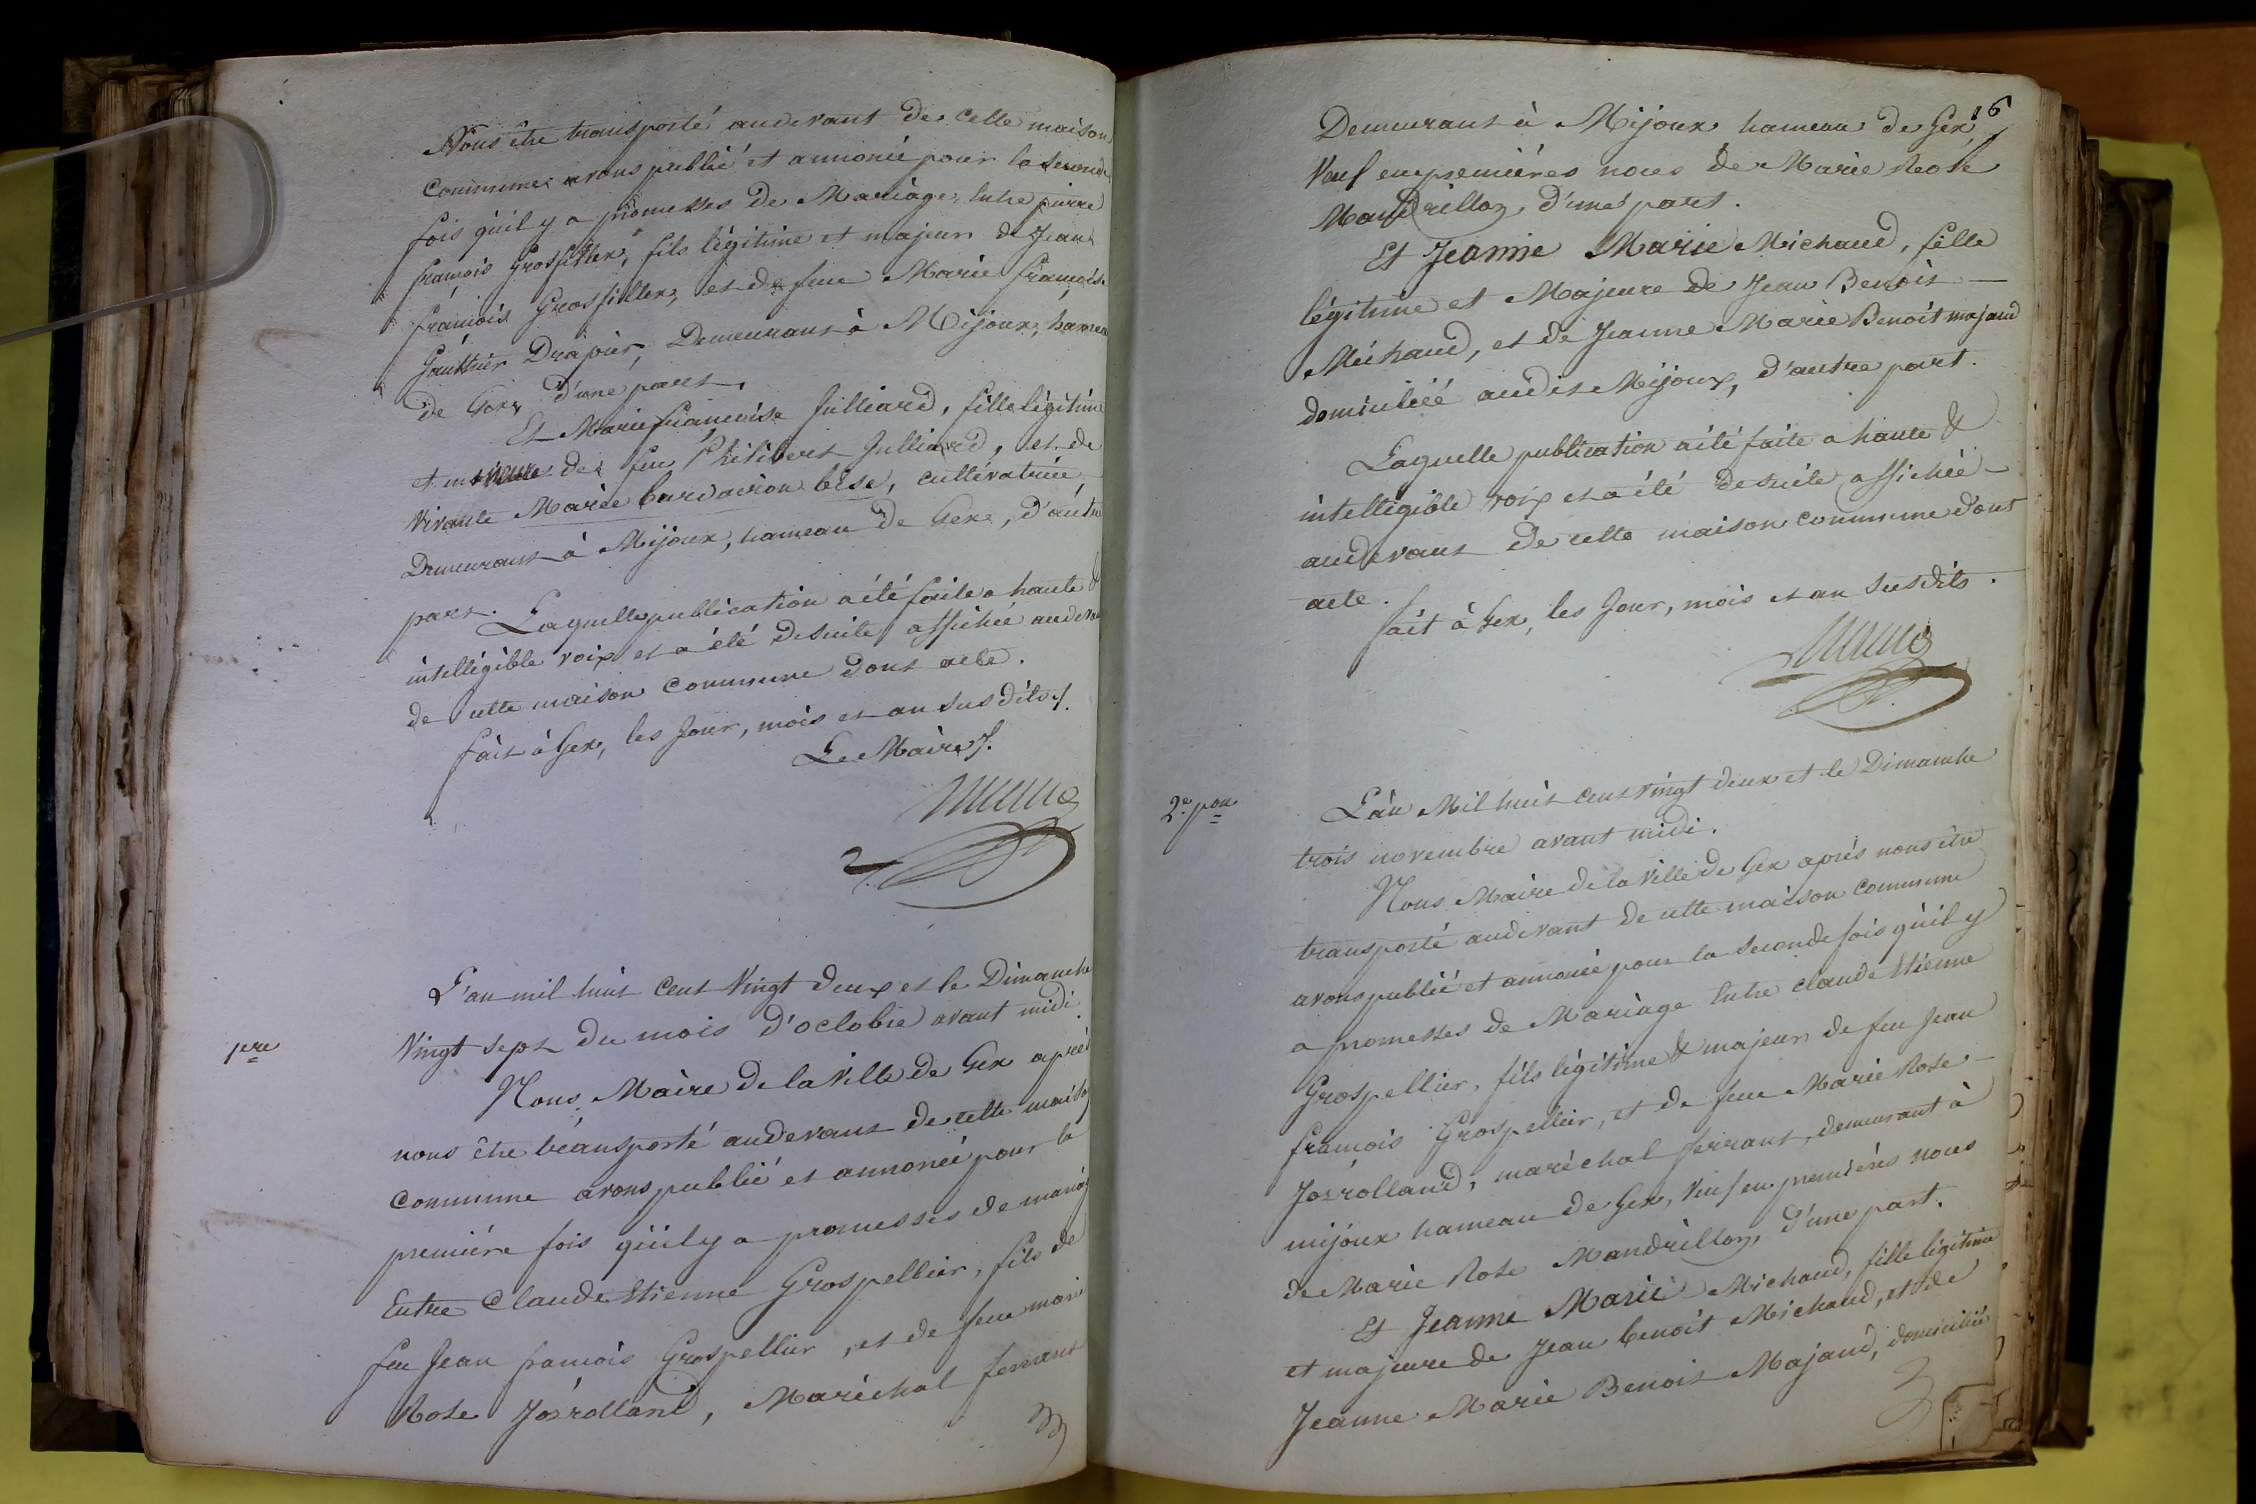 Nous être transporté audevant de cette maison
commune avons publié et annoncé pour la seconde
fois qu'il y a promesses de Mariage, Entre pierre
françois Grosfiller, fils légitime et majeur de Jean
françois Grosfiller, et de feue Marie françoise
Gauthier Drapier, Demeurant à Mijoux, hameau
de Gex, d'une part,
Et Marie françoise Julliard, fille légitime
et majeure de feu Philibert Julliard, et de
vivante Marie bise, cultivatrice,
Demeurant à Mijoux, hameau de Gex, d'autre
part.
Laquelle publication a été faite a haute &
intelligible voix et a été desuite affichée audevant
de cette maison commune dont acte.
fait à Gex, les Jour, mois et an susdits.
Le Maire
L'an mil huit cent Vingt deux et le Dimanche
1ere
Vingt sept du mois d'octobre avant midi
Nous Maire de la Ville de Gex après
nous être transporté audevant de cette maison
commune avons publié et annoncé pour la
première fois qu'il y a promesses de mariage
Entre Claude Etienne Grospellier, fils de
feu Jean francois Grospellier, et de feue marie
Rose Josrolland, Maréchal ferrant
16
Demeurant à Mijoux hameau de Gex,
Veuf en premières noces de Marie Rose
Mandrillon, d'une part.
Et Jeanne Marie Michaud, fille
légitime et Majeure de Jean Benoit
Michaud, et de Jeanne Marie Benoit majaud
domiciliée audit Mijoux, d'autre part.
Laquelle publication a été faite a haute &
intelligible voix et a été desuite affichée
audevant de cette maison commune dont
acte.
fait à Gex, les Jour, mois et an susdits.
2e pon
L'an Mil huit cent vingt deux et le Dimanche
trois novembre avant midi.
Nous Maire de la Ville de Gex après nous être
transporté audevant de cette maison commune
avons publié et annoncé pour la seconde fois qu'il y
a promesses de Mariage Entre claude Etienne
Grospellier, fils légitime & majeur de feu Jean
francois Grospellier, et de feue Marie Rose
Josrolland, maréchal ferrant, demeurant à
mijoux hameau de Gex, Veuf en premières noces
de Marie Rose Mandrillon, d'une part.
Et Jeanne Marie Michaud, fille légitime
et majeure de Jean benoit Michaud, et de
Jeanne Marie Benoit Majaud, domiciliée